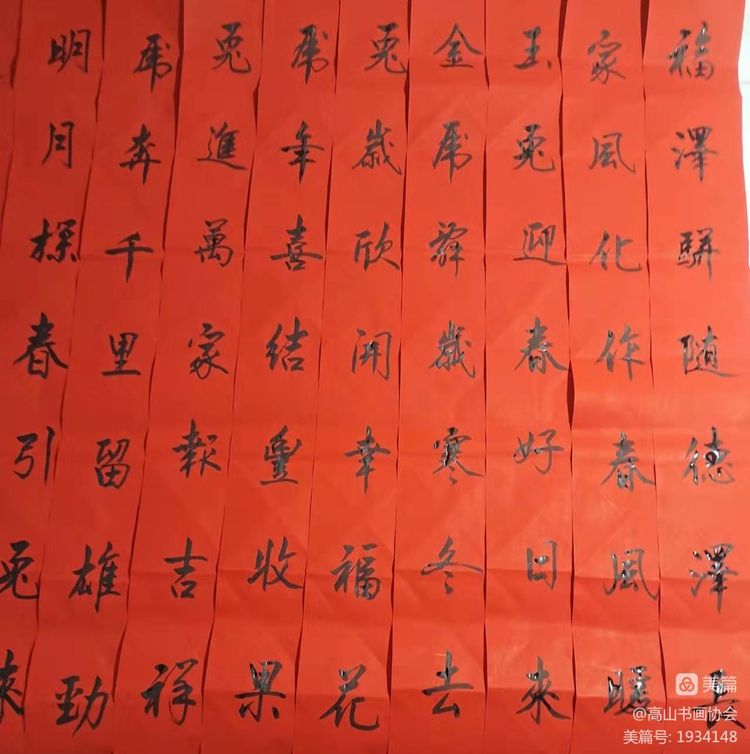 福澤駢随德澤長
家風化作春風暖
玉兔迎春好日來
金虎辭歲寒冬去
兔歲欣開幸福花
虎年喜結豐收果
兔進萬家報吉祥
虎奔千里留雄勁
明月探春引兔來
美篇
@高山书画协会
美篇号: 1934148